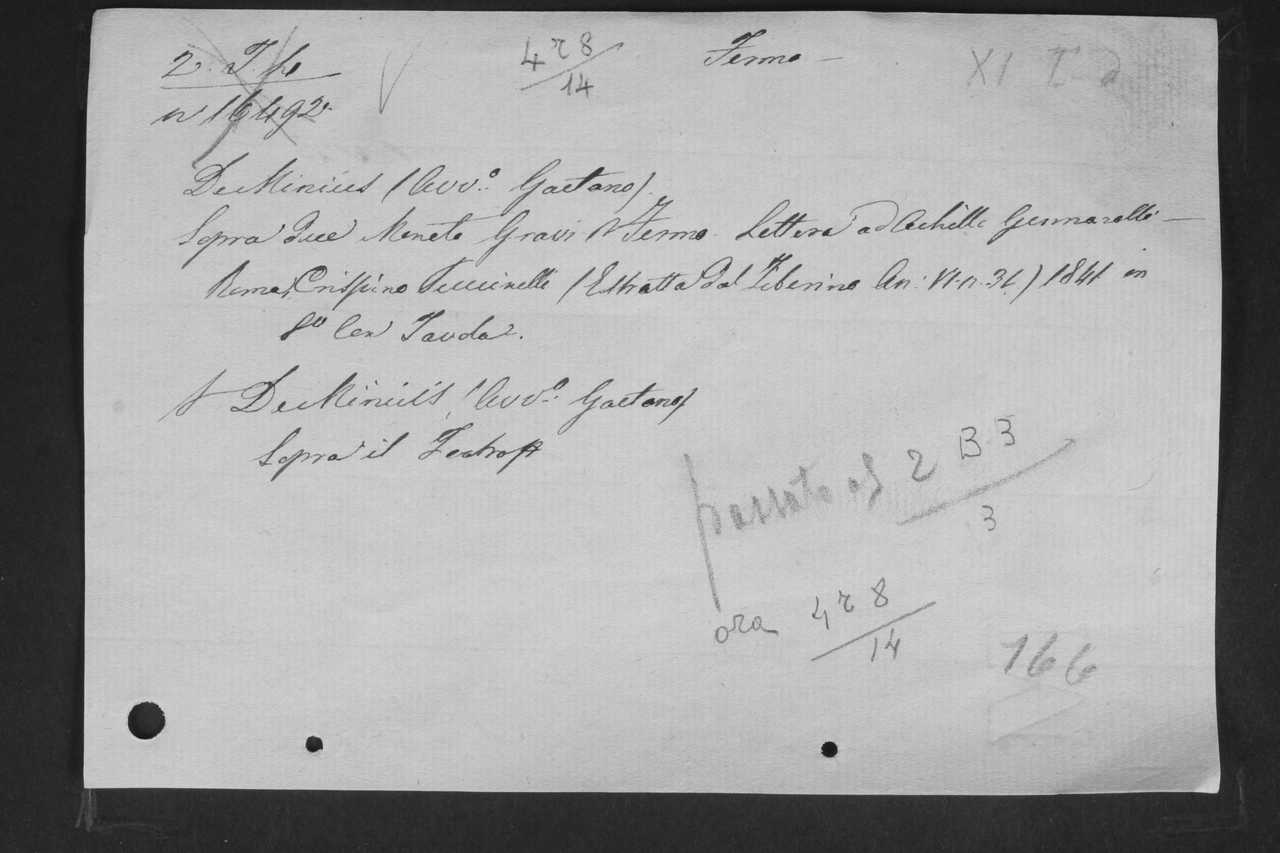 4 r 8 / 14
Fermo –
XI I
n 16492.
De Minicis (Avv.º Gaetano).
Sopra due Monete Gravi Fermo. Lettera ad Achille Gennarelli –
Roma, Crispino Puccinelli (Estratta dal Tiberino An: VI. n. 36) 1841 in
8º Con Tavola.
De Minicis (Avv.º Gaetano)
Sopra il
passato al 2 B 3 / 3
ora 4 r 8 / 14
166